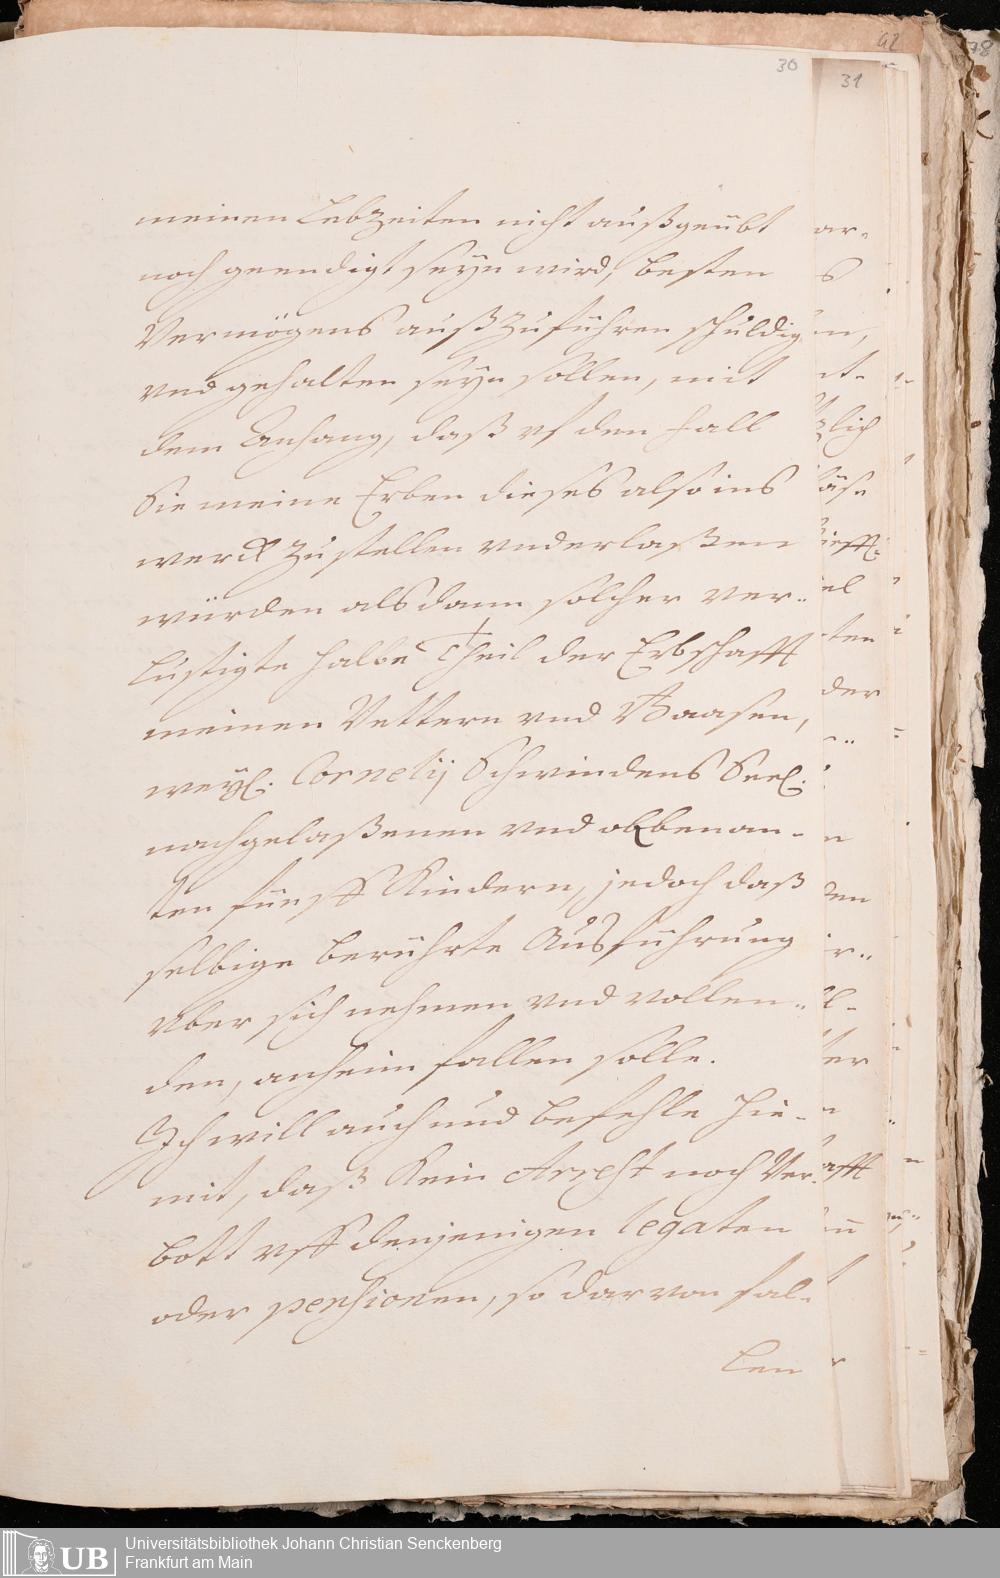 42
78
30
31
meinen Lebzeiten nicht außgeübt
noch geendigt seyn wird, besten
Vermögens außzuführen schuldig
vnd gehalten seyn sollen, mit
dem Anhang, daß vf den fall
Sie meine Erben dieses also ins
werck zustellen vnderlaßen
würden alsdann solcher ver-
lustigte halbe Theil der Erbschafft
meinen Vettern vnd Baasen,
weyl. Cornelij Schwindens Seel.
nachgelaßenen vnd obbenan-
ten fünff Kindern, jedoch daß
selbige berührte Ausführung
vber sich nehmen vnd vollen-
den, anheim fallen solle.
Ich will auch und befehle hie-
mit, daß kein Arrest noch Ver-
bott vff denjenigen legaten
oder pensionen, so darvon fal-
len
Universitätsbibliothek Johann Christian Senckenberg
Frankfurt am Main
UB